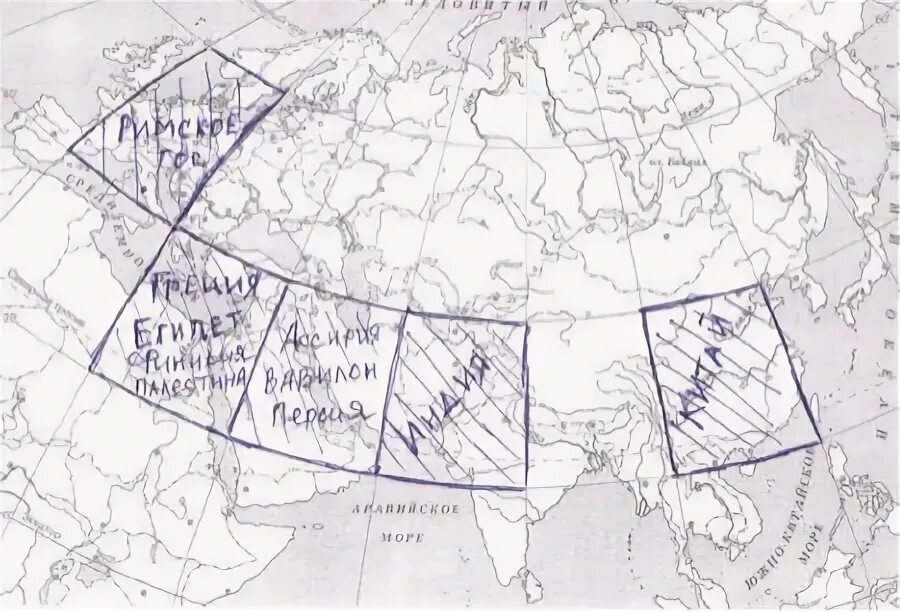 ЛЕДОВИТЫЙ
РИМСКОЕ
ГОС
ГРЕЦИЯ
ЕГИПЕТ
ФИНИКИЯ
ПАЛЕСТИНА
АССИРИЯ
ВАВИЛОН
ПЕРСИЯ
ИНДИЯ
КИТАЙ
АРАВИЙСКОЕ
МОРЕ
ЮЖНО-КИТАЙСКОЕ
МОРЕ